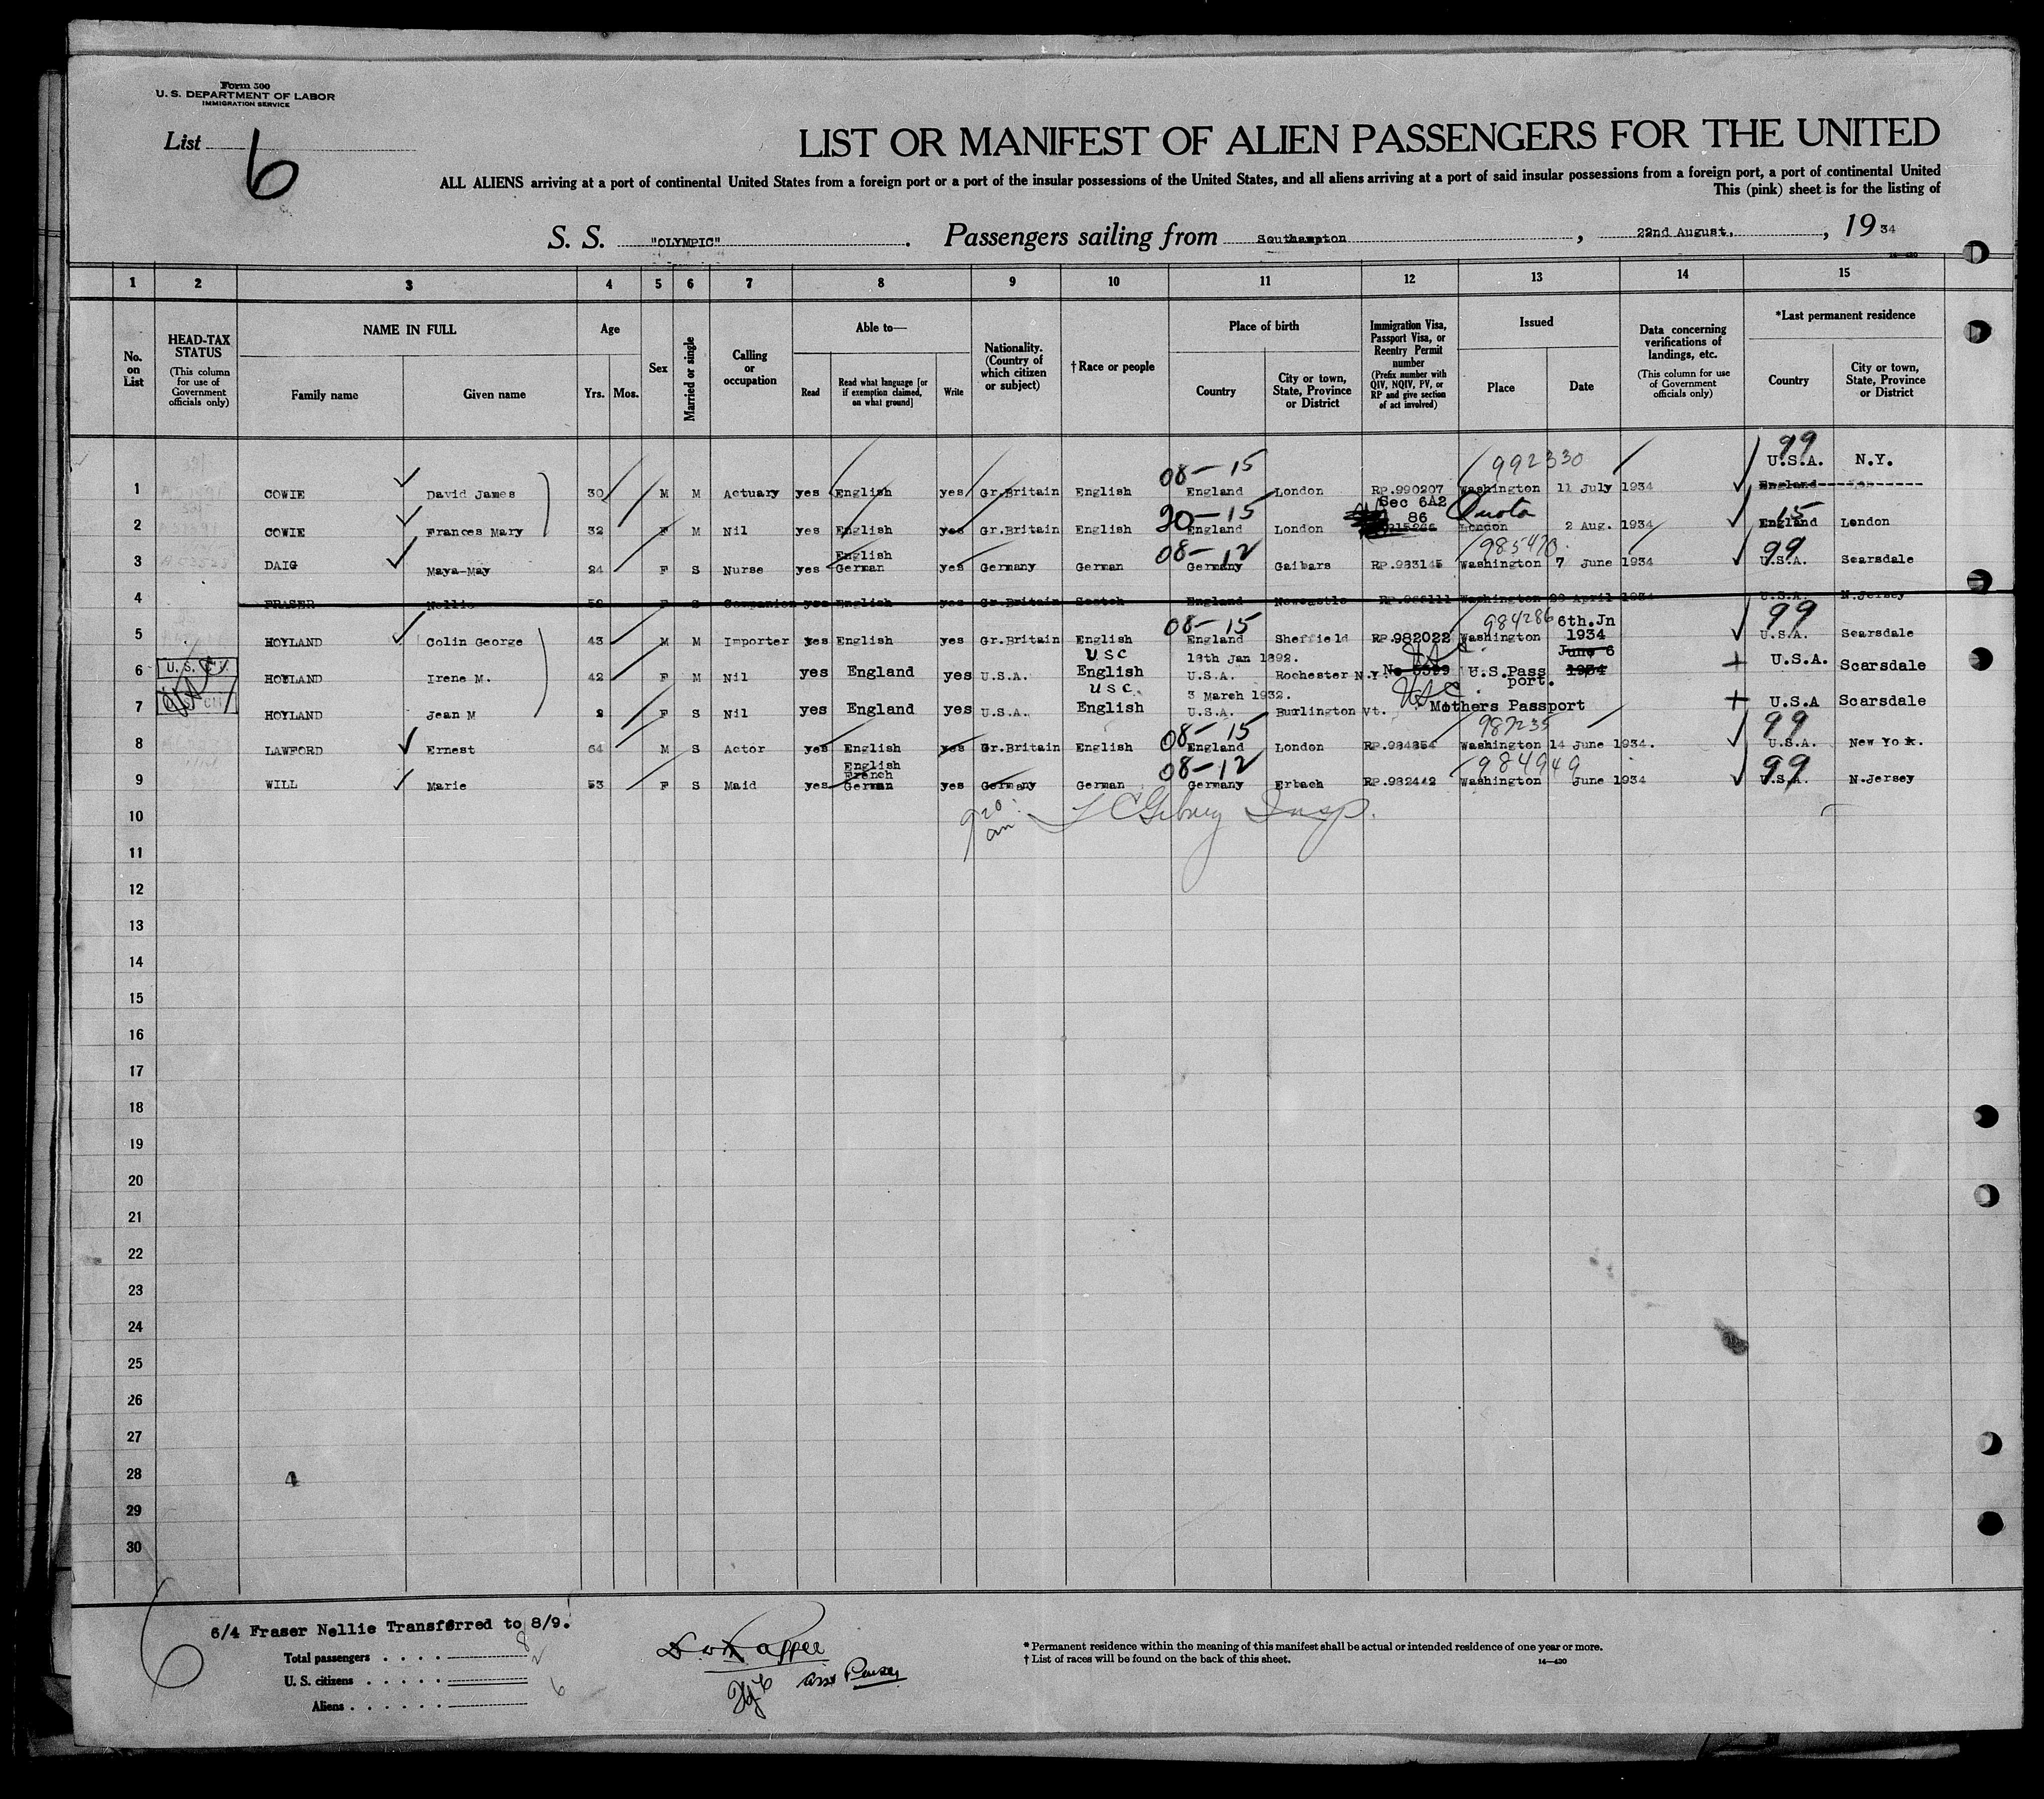 Form 500
U. S. DEPARTMENT OF LABOR
IMMIGRATION SERVICE
List 6
LIST OR MANIFEST OF ALIEN PASSENGERS FOR THE UNITED
ALL ALIENS arriving at a port of continental United States from a foreign port or a port of the insular possessions of the United States, and all aliens arriving at a port of said insular possessions from a foreign port, a port of continental United
This (pink) sheet is for the listing of
S. S. "OLYMPIC". Passengers sailing from Southampton, 22nd August, 1934
14—420
1 2 3 4 5 6 7 8 9 10 11 12 13 14 15
No. on List
HEAD-TAX STATUS (This column for use of Government officials only)
NAME IN FULL Family name Given name
Age Yrs. Mos.
Sex
Married or single
Calling or occupation
Able to— Read Read what language [or if exemption claimed, on what ground] Write
Nationality. (Country of which citizen or subject)
†Race or people
Place of birth Country City or town, State, Province or District
Immigration Visa, Passport Visa, or Reentry Permit number (Prefix number with QIV, NQIV, PV, or RP and give section of act involved)
Issued Place Date
Data concerning verifications of landings, etc. (This column for use of Government officials only)
*Last permanent residence Country City or town, State, Province or District
08—15 992330 99
U.S.A. N.Y.
1 COWIE David James 30 M M Actuary yes English yes Gr.Britain English England London RP.990207 Washington 11 July 1934 England
Sec 6A2
20—15 86 Quota 15
2 COWIE Frances Mary 32 F M Nil yes English yes Gr.Britain English England London London 2 Aug. 1934 England London
English 08—12 985470 99
3 DAIG Maya-May 24 F S Nurse yes German yes Germany German Germany Gaibars RP.983145 Washington 7 June 1934 U.S.A. Scarsdale
4 FRASER Nellie F S Companion yes English yes Gr.Britain Scotch England Newcastle Washington April 1934 U.S.A. N.Jersey
08—15 984286 6th.Jn 99
5 HOYLAND Colin George 43 M M Importer yes English yes Gr.Britain English England Sheffield RP.982022 Washington 1934 U.S.A. Scarsdale
USC 18th Jan 1892. June 6
U. S. CIT.
6 HOYLAND Irene M. 42 F M Nil yes England yes U.S.A. English U.S.A. Rochester N.Y. U.S.Pass port. 1934 U.S.A. Scarsdale
USC 3 March 1932.
7 HOYLAND Jean M 2 F S Nil yes England yes U.S.A. English U.S.A. Burlington Vt. Mothers Passport U.S.A Scarsdale
08—15 987235 99
8 LAWFORD Ernest 64 M S Actor yes English yes Gr.Britain English England London RP.984854 Washington 14 June 1934. U.S.A. New York.
English
French 08—12 984949 99
9 WILL Marie 53 F S Maid yes German yes Germany German Germany Erbach RP.982442 Washington June 1934 U.S.A. N.Jersey
10 Insp.
11
12
13
14
15
16
17
18
19
20
21
22
23
24
25
26
27
28
29
30
6/4 Fraser Nellie Transferred to 8/9.
Total passengers 8
U. S. citizens
Aliens 6
6
* Permanent residence within the meaning of this manifest shall be actual or intended residence of one year or more.
† List of races will be found on the back of this sheet.
14—420